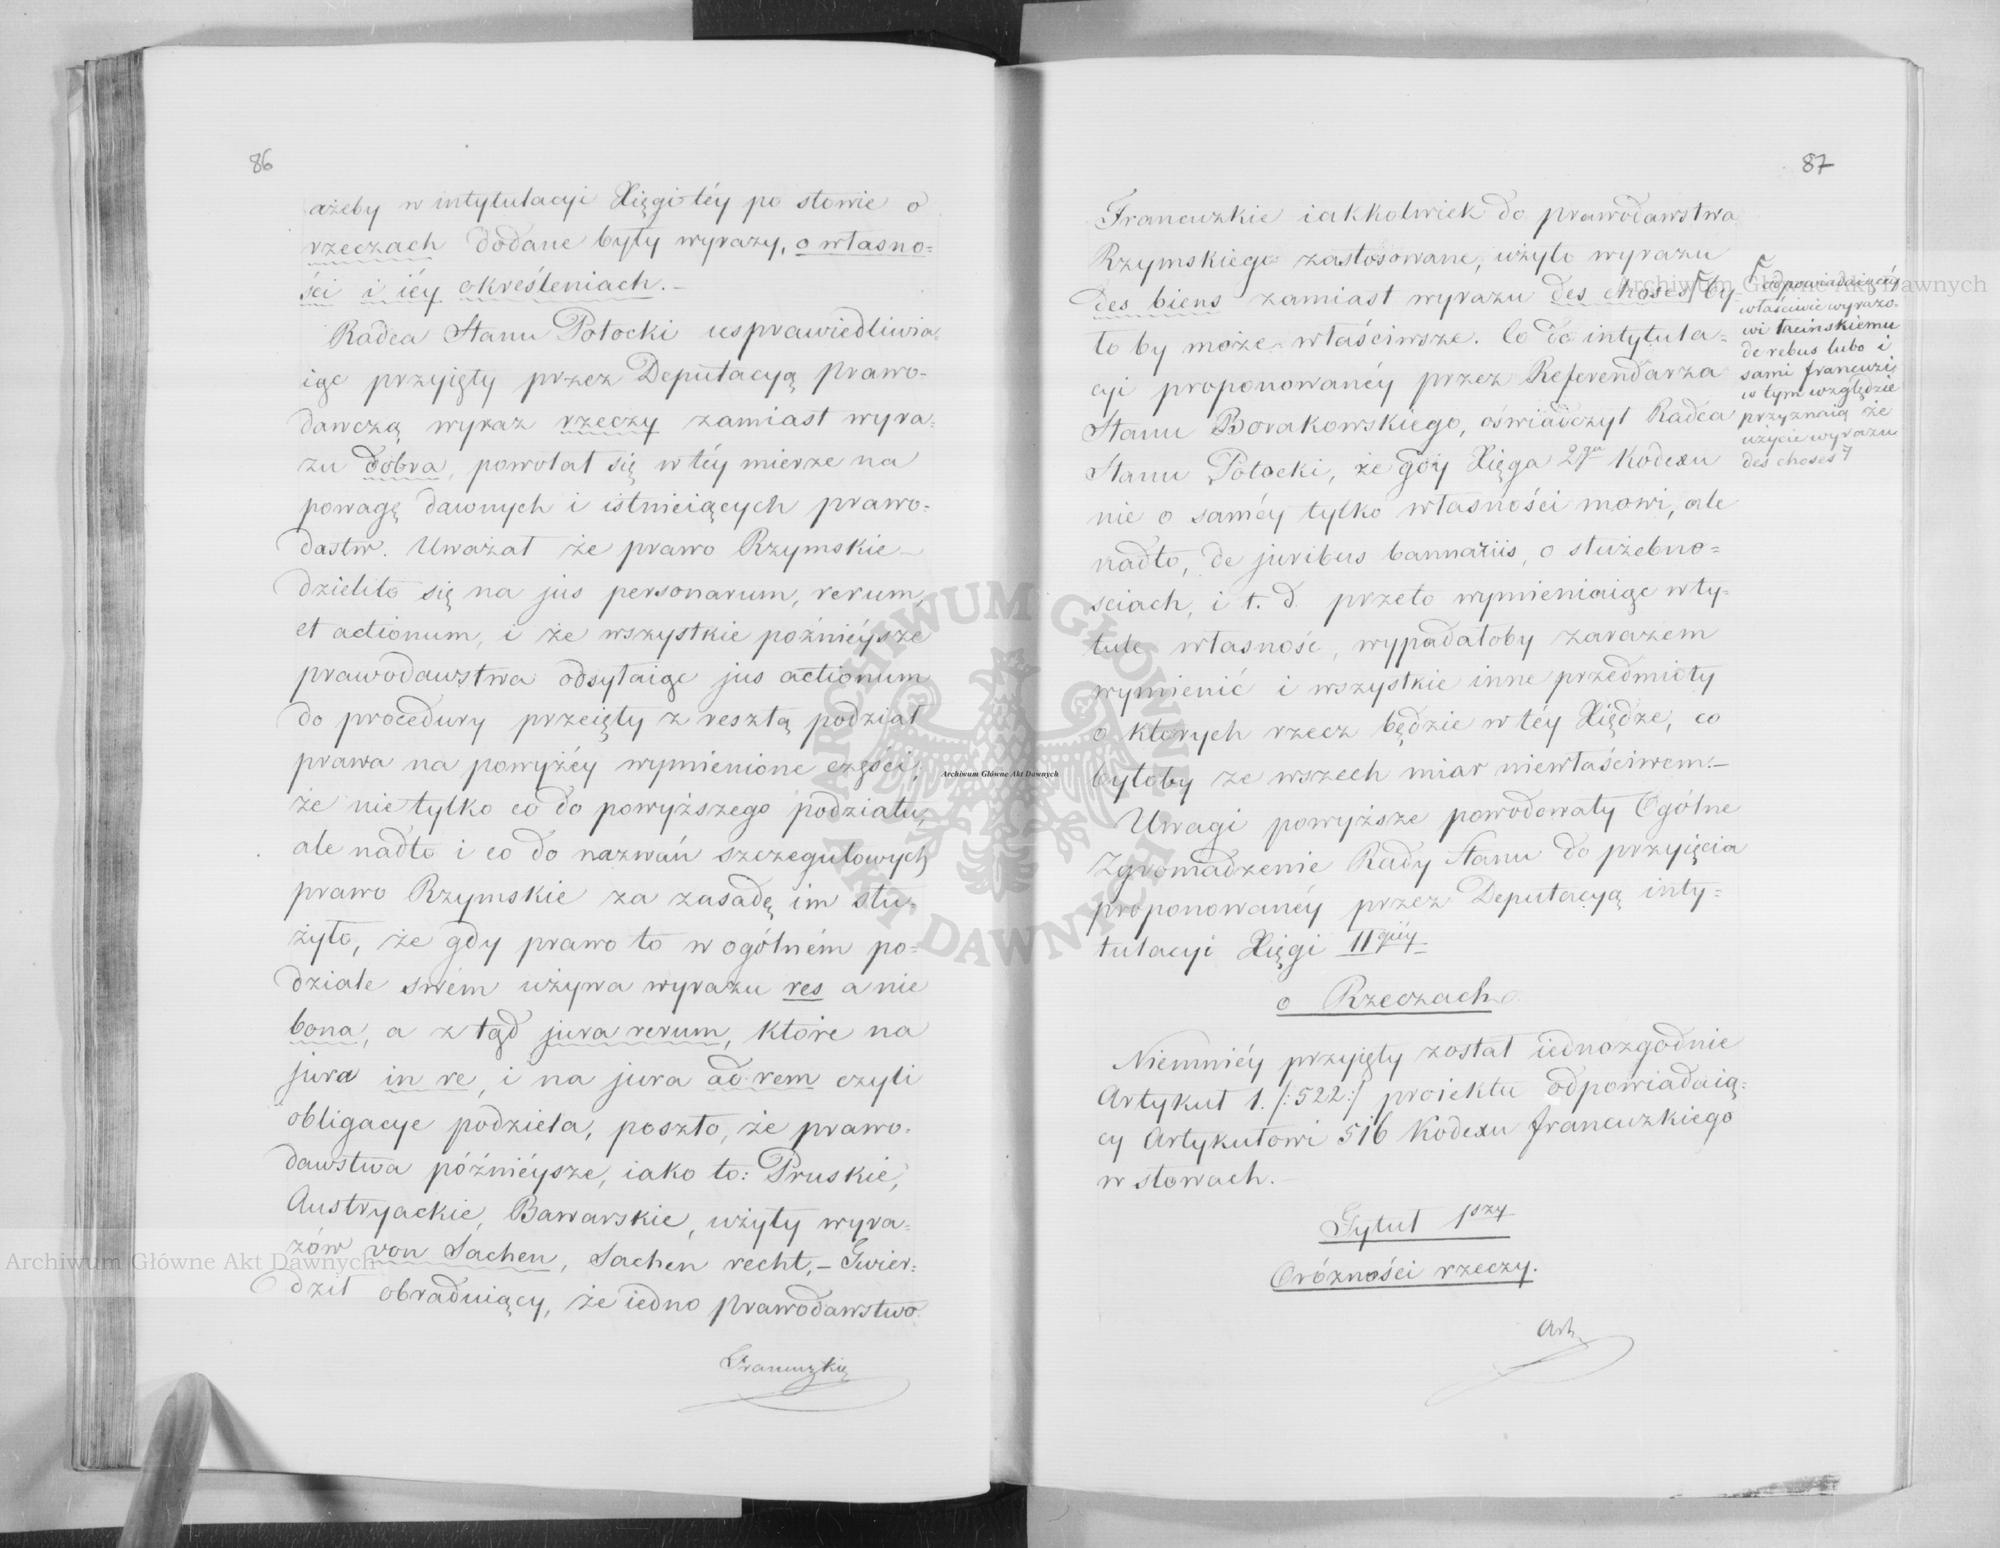 86
ażeby w intytulacyi Xięgi téy po słowie o
rzeczach dodane były wyrazy, o własno-
ści i iéy określeniach.–
Radca Stanu Potocki usprawiedliwia-
iąc przyięty przez Deputacyą Prawo-
dawczą wyraz rzeczy zamiast wyra-
zu dobra, powołał się w téy mierze na
powagę dawnych i istnieiących prawo-
dastw. Uważał że prawo Rzymskie–
dzieliło się na jus personarum, rerum,
et actionum, i że wszystkie poźniéysze
prawodawstwa odsyłaiąc jus actionum
do procedury przeięły z resztą podział
prawa na powyżéy wymienione części,
że nie tylko co do powyższego podziału,
ale nadto i co do nazwań szczegułowych
prawo Rzymskie za zasadę im słu-
żyło, że gdy prawo to w ogólném po-
dziale swém używa wyrazu res a nie
bona, a z tąd jura rerum, które na
jura in re, i na jura ad rem czyli
obligacye podziela, poszło, że prawo-
dawstwa późniéysze, iako to: Pruskie,
Austryackie, Bawarskie, użyły wyra-
zów von Sachen, Sachen recht,– Twier-
dził obraduiący, że iedno Prawodawstwo
Francuzkie
87
Francuzkie iakkolwiek do prawodawstwa
Rzymskiego zastosowane, użyło wyrazu
des biens zamiast wyrazu des choses by
to by może właściwsze. Co do intytula-
cyi proponowanéy przez Referendarza
Stanu Borakowskiego, oświadczył Radca
Stanu Potocki, że gdy Xięga 2ga Kodexu
nie o saméy tylko własności mowi, ale
nadto, de juribus bannariis, o służebno-
sciach, i t. d. przeto wymieniaiąc w ty-
tule własność, wypadałoby zarazem
wymienić i wszystkie inne przedmioty
o ktorych rzecz będzie w téy Xiędze, co
byłoby ze wszech miar niewłaściwem.–
Uwagi powyższe powodowały Ogólne
Zgromadzenie Rady Stanu do przyięcia
proponowanéy przez Deputacyą inty-
tulacyi Xięgi IIgiéy
o Rzeczach
Niemniéy przyięty został iednozgodnie
Artykuł 1. /:522:/ proiektu odpowiadaią-
cy Artykułowi 516 Kodexu francuzkiego
w słowach.–
Tytuł 1szy
O różności rzeczy.
Art.
odpowiadaiąc
właściwie wyrazo-
wi łacińskiemu
de rebus lubo i
sami francuzi
w tym względzie
przyznaią że
użycie wyrazu
des choses
Archiwum Główne Akt Dawnych
Archiwum Główne Akt Dawnych
Archiwum Główne Akt Dawnych
ARCHIWUM GŁÓWNE AKT DAWNYCH